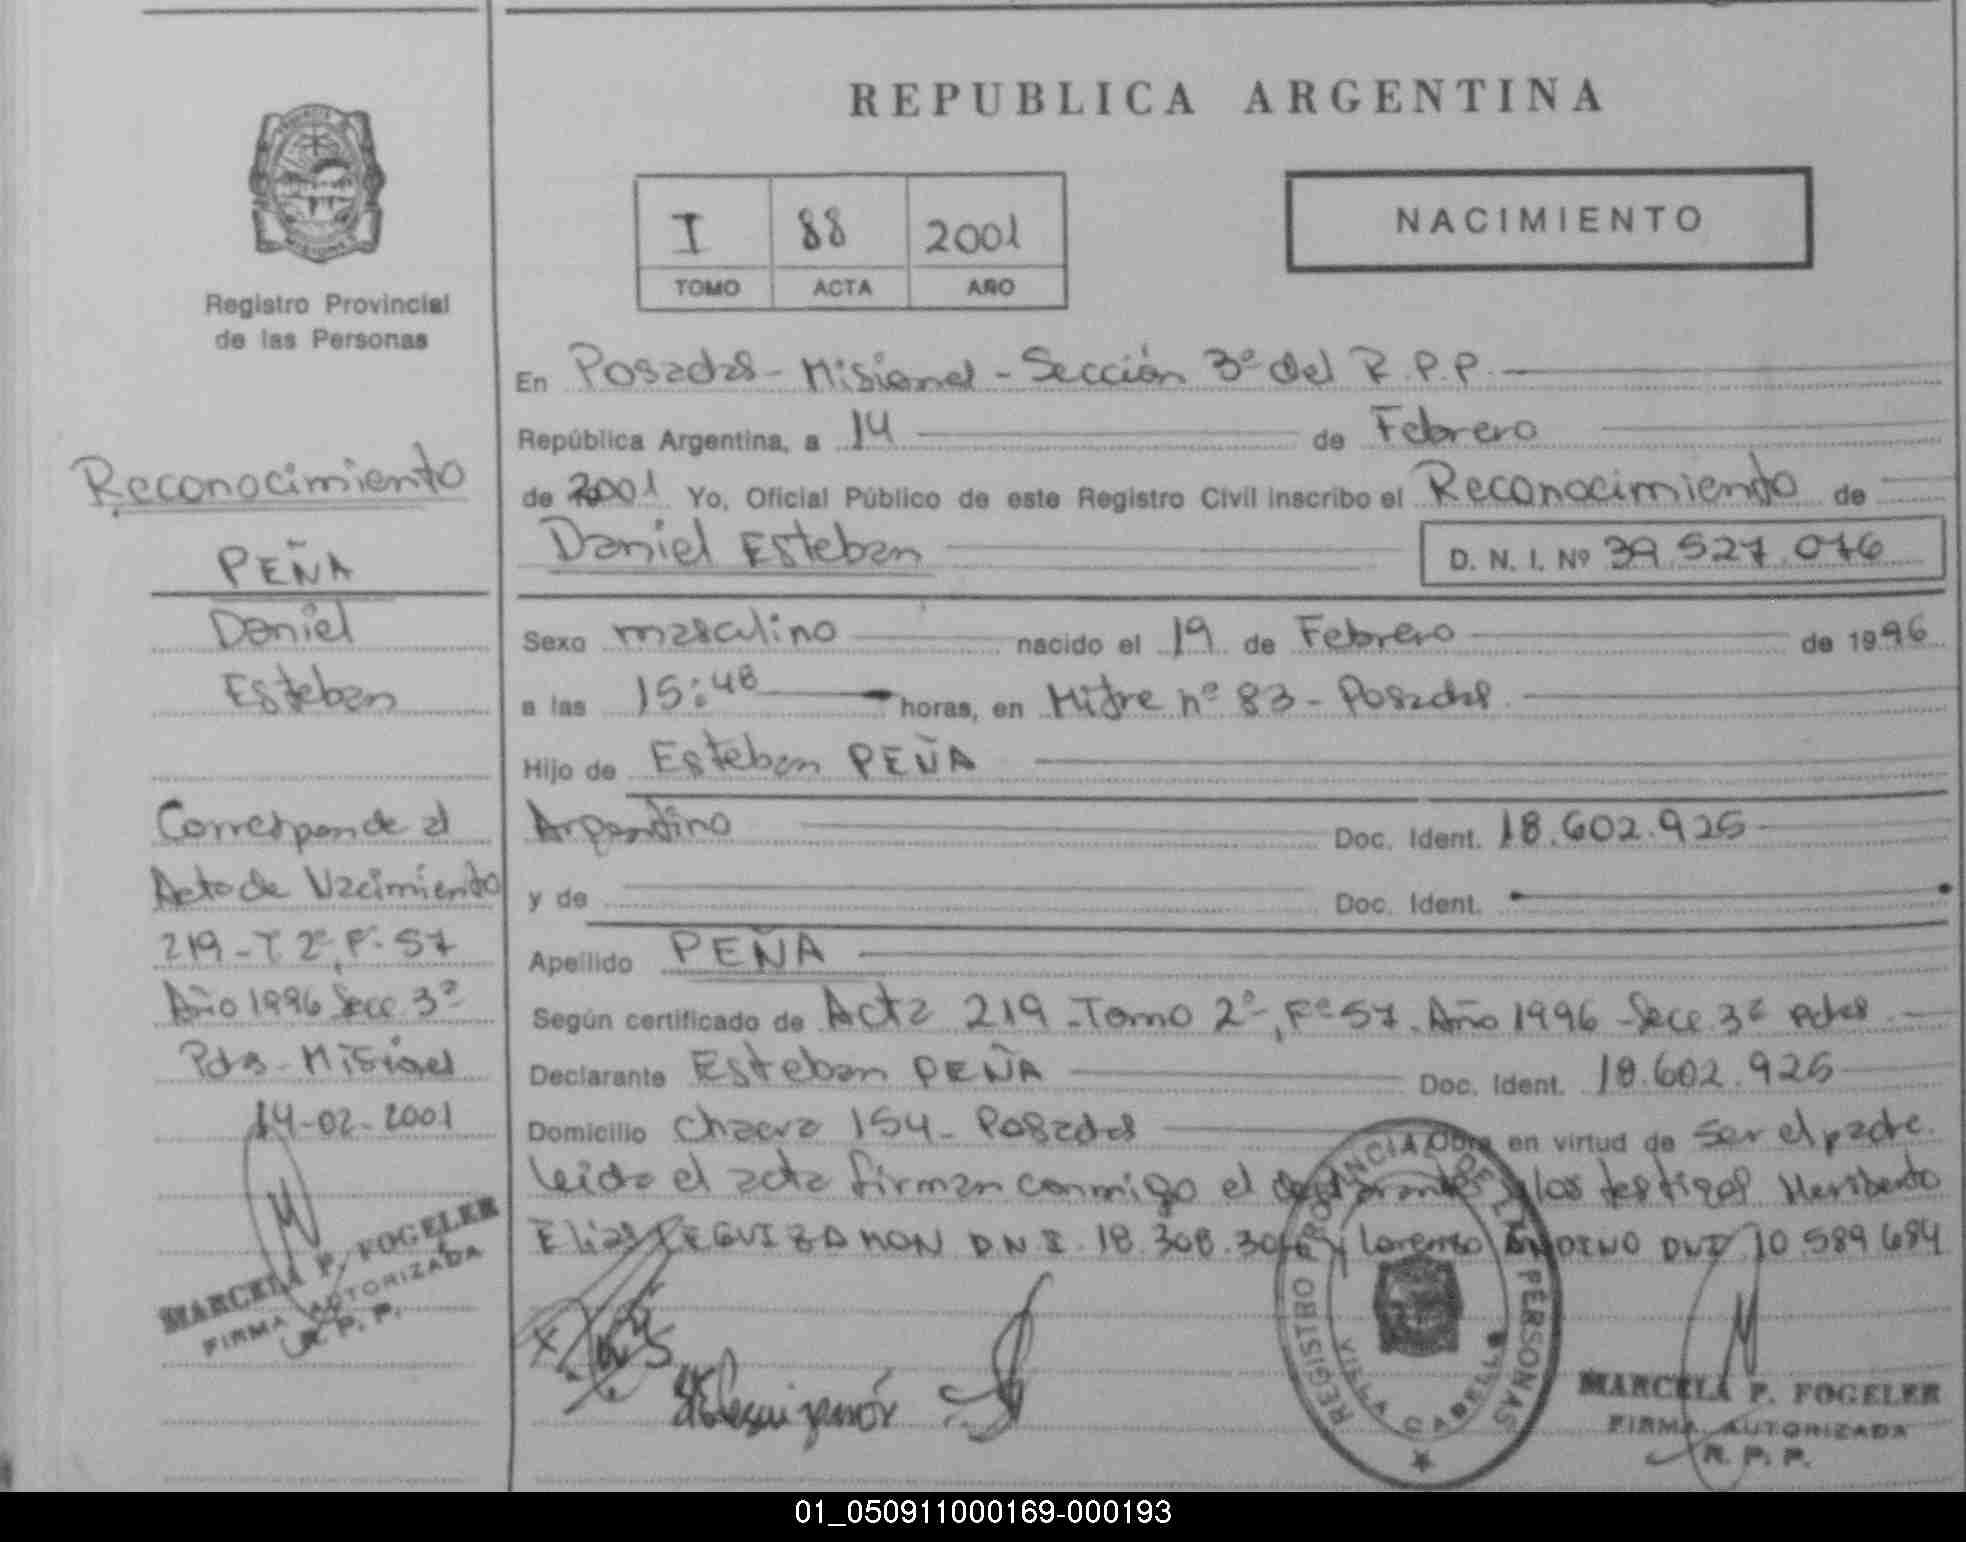 REPUBLICA ARGENTINA
NACIMIENTO
I 88 2001
TOMO ACTA AÑO
Registro Provincial
de las Personas
Reconocimiento
PEÑA
Daniel
Esteban
Corresponde al
Acta de Nacimiento
219 - T 2º, Fº 57
Año 1996 Secc 3ª
Pdas - Misiones
14-02-2001
MARCELA P. FOGELER
FIRMA AUTORIZADA
R. P. P.
En Posadas - Misiones - Sección 3ª del R.P.P.
República Argentina, a 14 de Febrero
de 2001 Yo, Oficial Público de este Registro Civil inscribo el Reconocimiento de
Daniel Esteban D. N. I. Nº 39.527.076
Sexo masculino nacido el 19 de Febrero de 1996
a las 15:48 horas, en Mitre nº 83 - Posadas
Hijo de Esteban PEÑA
Argentino Doc. Ident. 18.602.925
y de Doc. Ident.
Apellido PEÑA
Según certificado de Acta 219 - Tomo 2º, Fº 57 - Año 1996 - Secc 3ª Pdas
Declarante Esteban PEÑA Doc. Ident. 18.602.925
Domicilio Chacra 154 - Posadas Obra en virtud de ser el padre.
Leida el acta firman conmigo el declarante y los testigos Heriberto
Elias LEGUIZAMON DNI 18.308.30 y Lorenzo ANDINO DNI 10.589.684
REGISTRO PROVINCIAL DE LAS PERSONAS
VILLA CABELLO
MARCELA P. FOGELER
FIRMA AUTORIZADA
R. P. P.
01_050911000169-000193